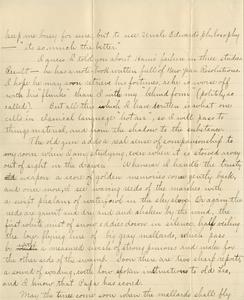 keep me busy for sure, but to use Uncle Edwards philosophy
- "so much the better"
I guess I told you about Hams' failure in three studies
Result - he has a note book written full of New year Resolutions
I hope he may soon retrieve his fortunes, as he is worse off
with his "flunks" than I with my "behind form" (politely so
called). But all this which I have written is what one
calls in classical language "hot air", so I will pass to
things material, and from the shadow to the substance.
The old gun adds a real sense of companionship to
my room when I am studying, even when it is stored away
out of sight in the drawer. Whenever I handle the trusty
weapon a score of golden memories come gently back,
and one more, I see waving reeds of the marshes with
a swift phalanx of waterfowl in the sky above. Or again the
reeds are gaunt and dry and ashen by the wind, the
first white mist of snow eddies down in silence,
the long flying line of big gray mallards, which passed
by with measured swish of strong pinions and make for
the other side of the swamp. Soon there are two sharp reports
a sound of wading, with low spoken instructions to old Leo,
and I know that Papa has scored.
May the time come soon when the mallards shall fly